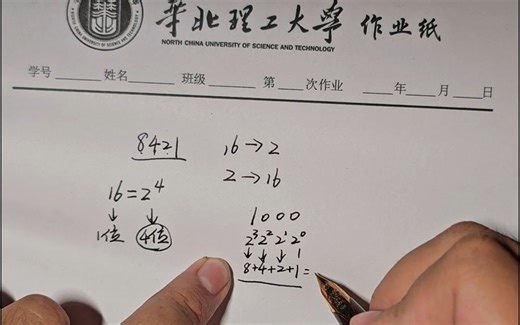 華北理工大學 作业纸
NORTH CHINA UNIVERSITY OF SCIENCE AND TECHNOLOGY
学号 ______ 姓名______ 班级 ______ 第 ___次作业 ____年____月____日
8421
16→2
2→16
16=2⁴
↓ ↓
1位 4位
1000
2³2²2¹2⁰
↓↓↓1
8+4+2+1=